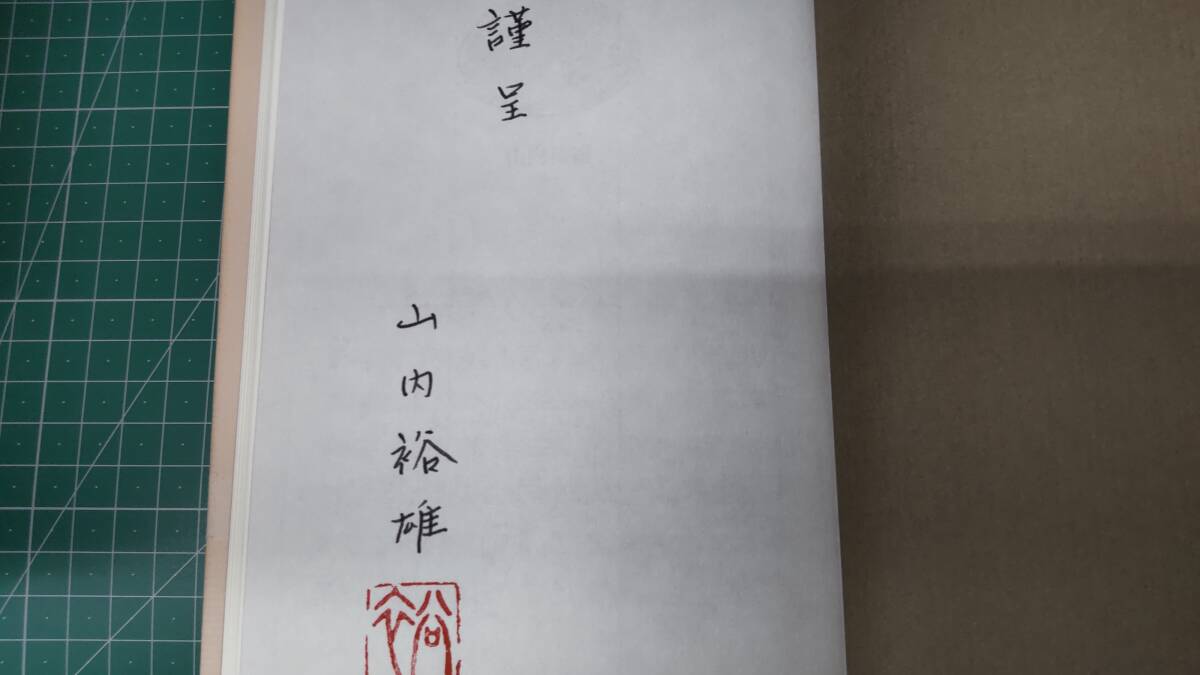 謹呈
山内裕雄
裕